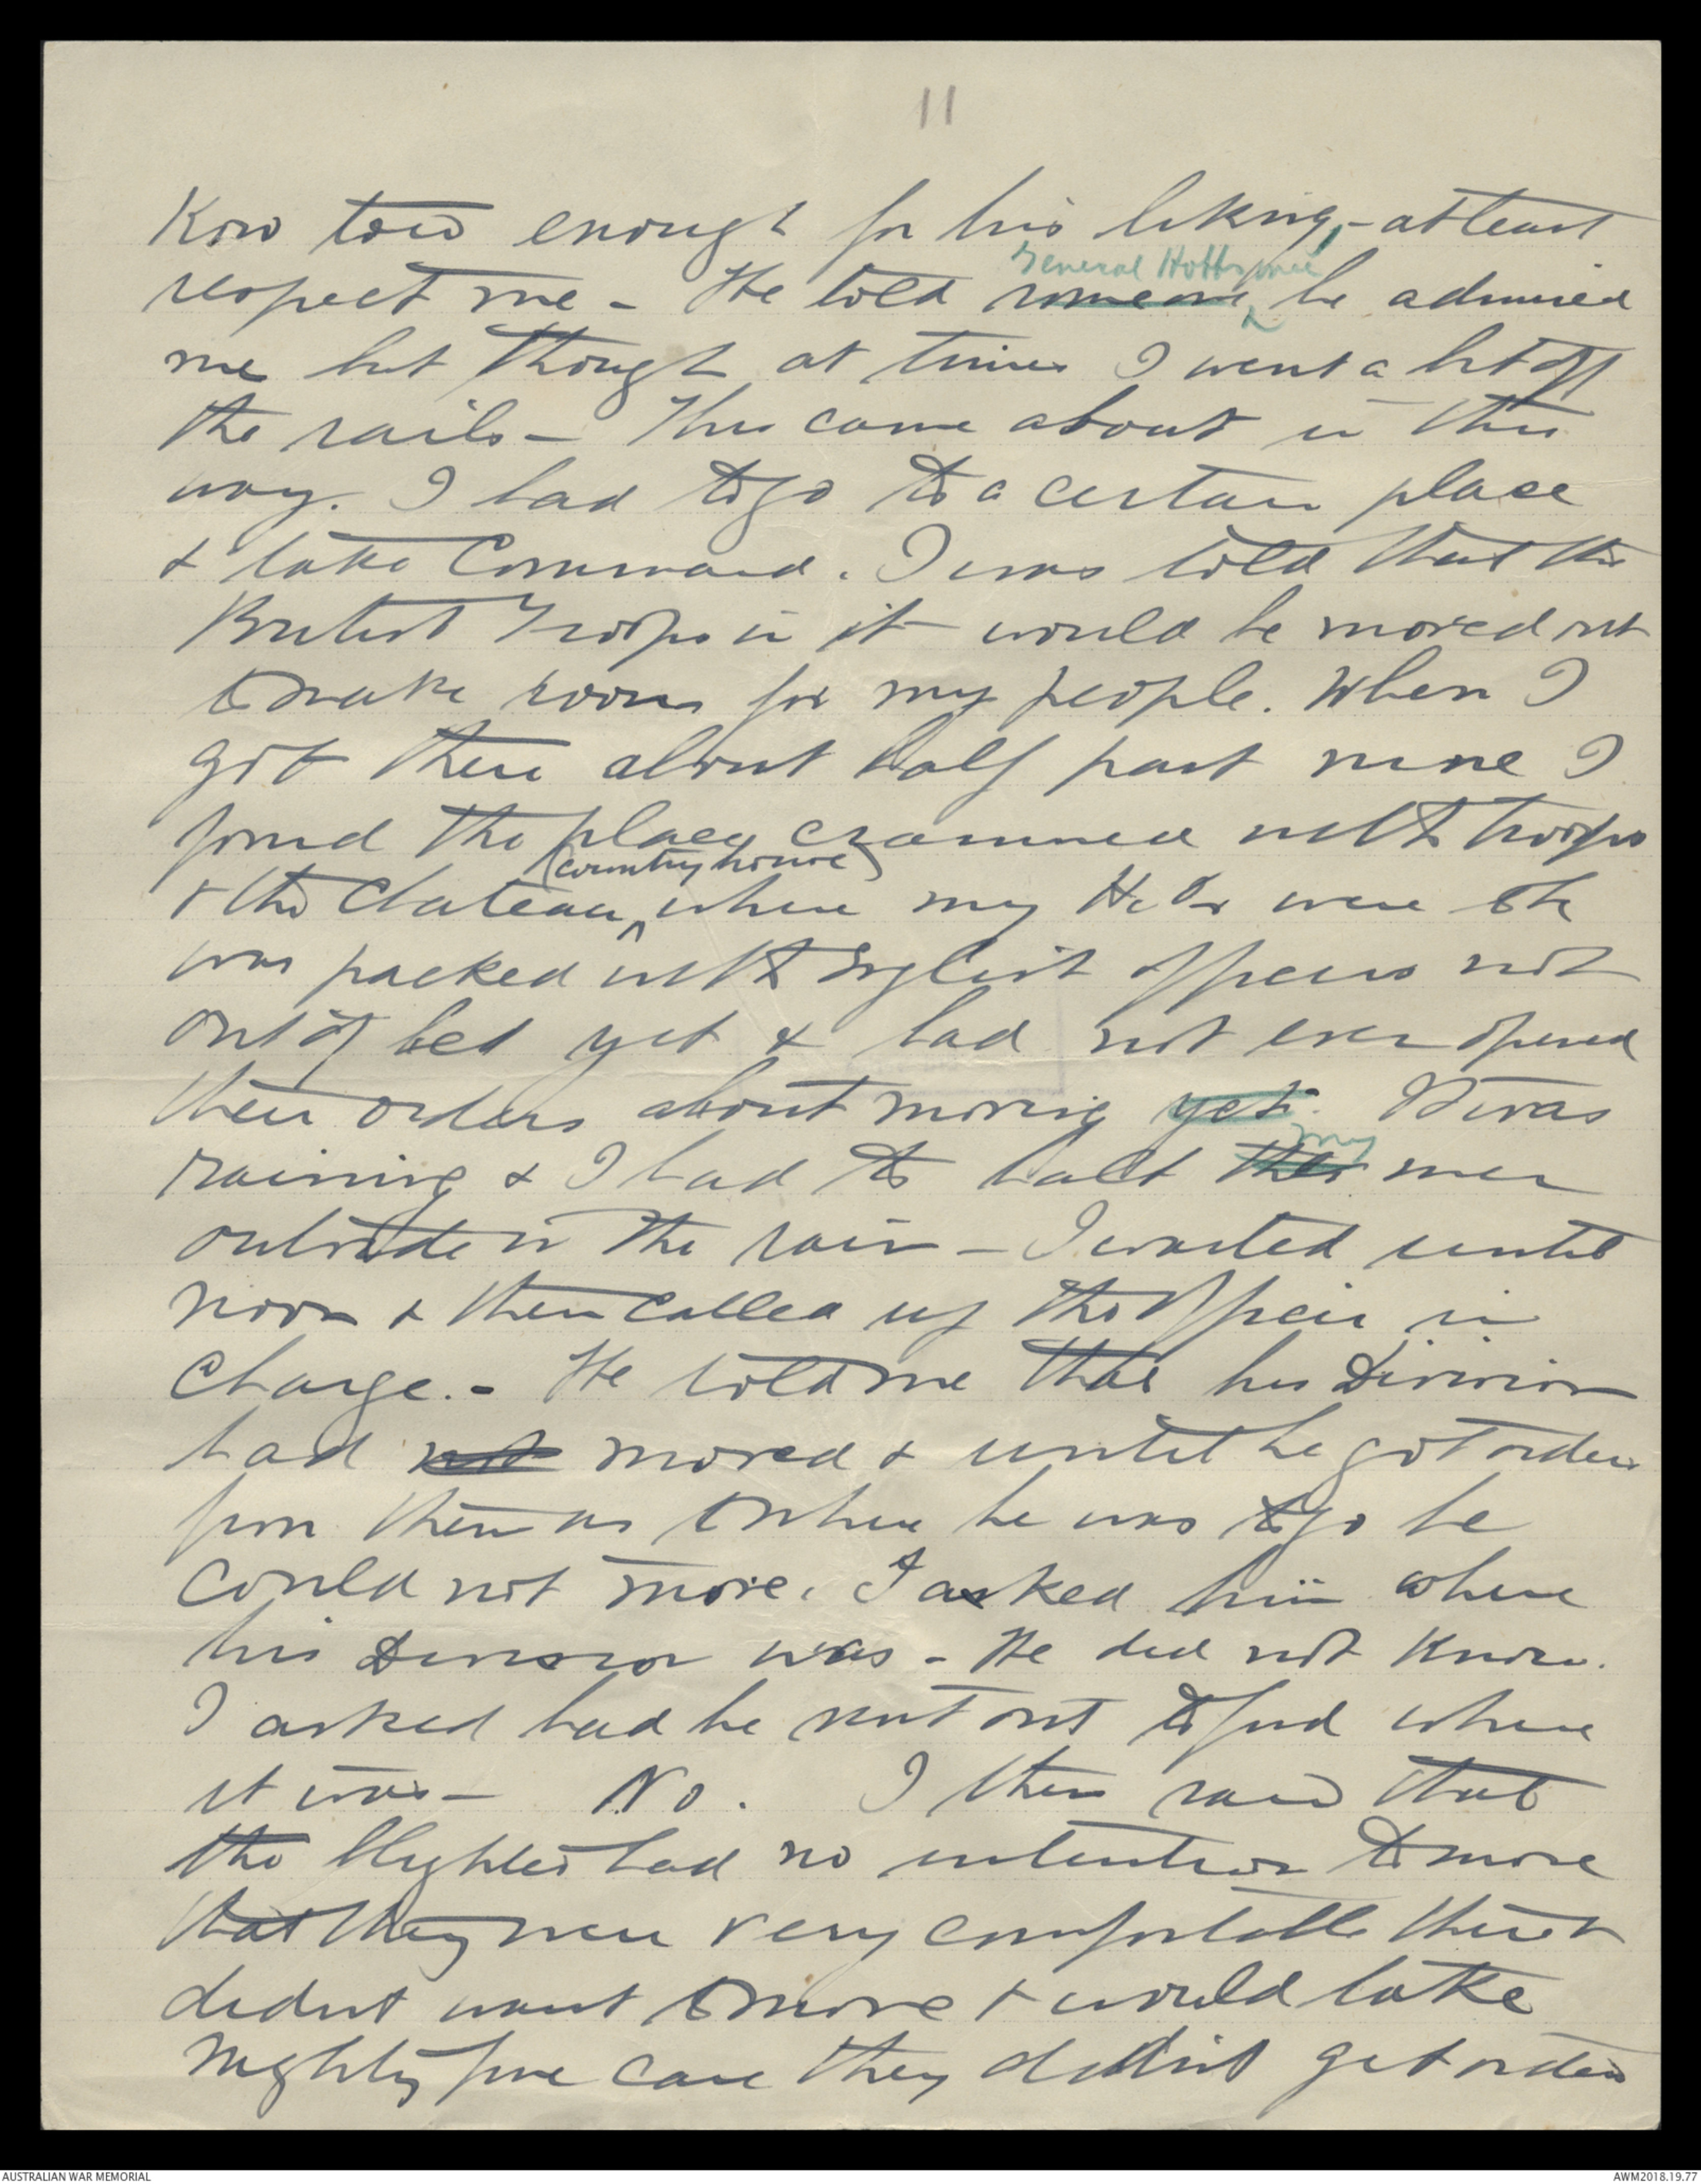 11
Kow tow enough for his liking, - at least
General Hobbs once
respect me - He told someone he admired
me but thought at times I went a bit off
the rails - This came about in this
way. I had to go to a certain place
& take Command. I was told that the
British Troops in it would be moved out
to make room for my people. When I
got there about half past nine I
found the place crammed with troops
(country house)
& the Chateau ^ where my Hd Qrs were to be
was packed with English officers not
out of bed yet & had not even opened
their orders about moving yet. It was
my
raining & I had to halt the men
outside in the rain - I waited until
noon & then called up the Officer in
Charge. - He told me that his Division
had not moved & until he got orders
from them as to where he was to go he
could not move. I asked him where
his Division was - He did not know.
I asked had he sent out to find where
it was - No. I then said that
the blighter had no intention to move
that they were very comfortable there &
didnt want to move & would take
mighty fine care they didnt get orders
AUSTRALIAN WAR MEMORIAL
AWM2018.19.77